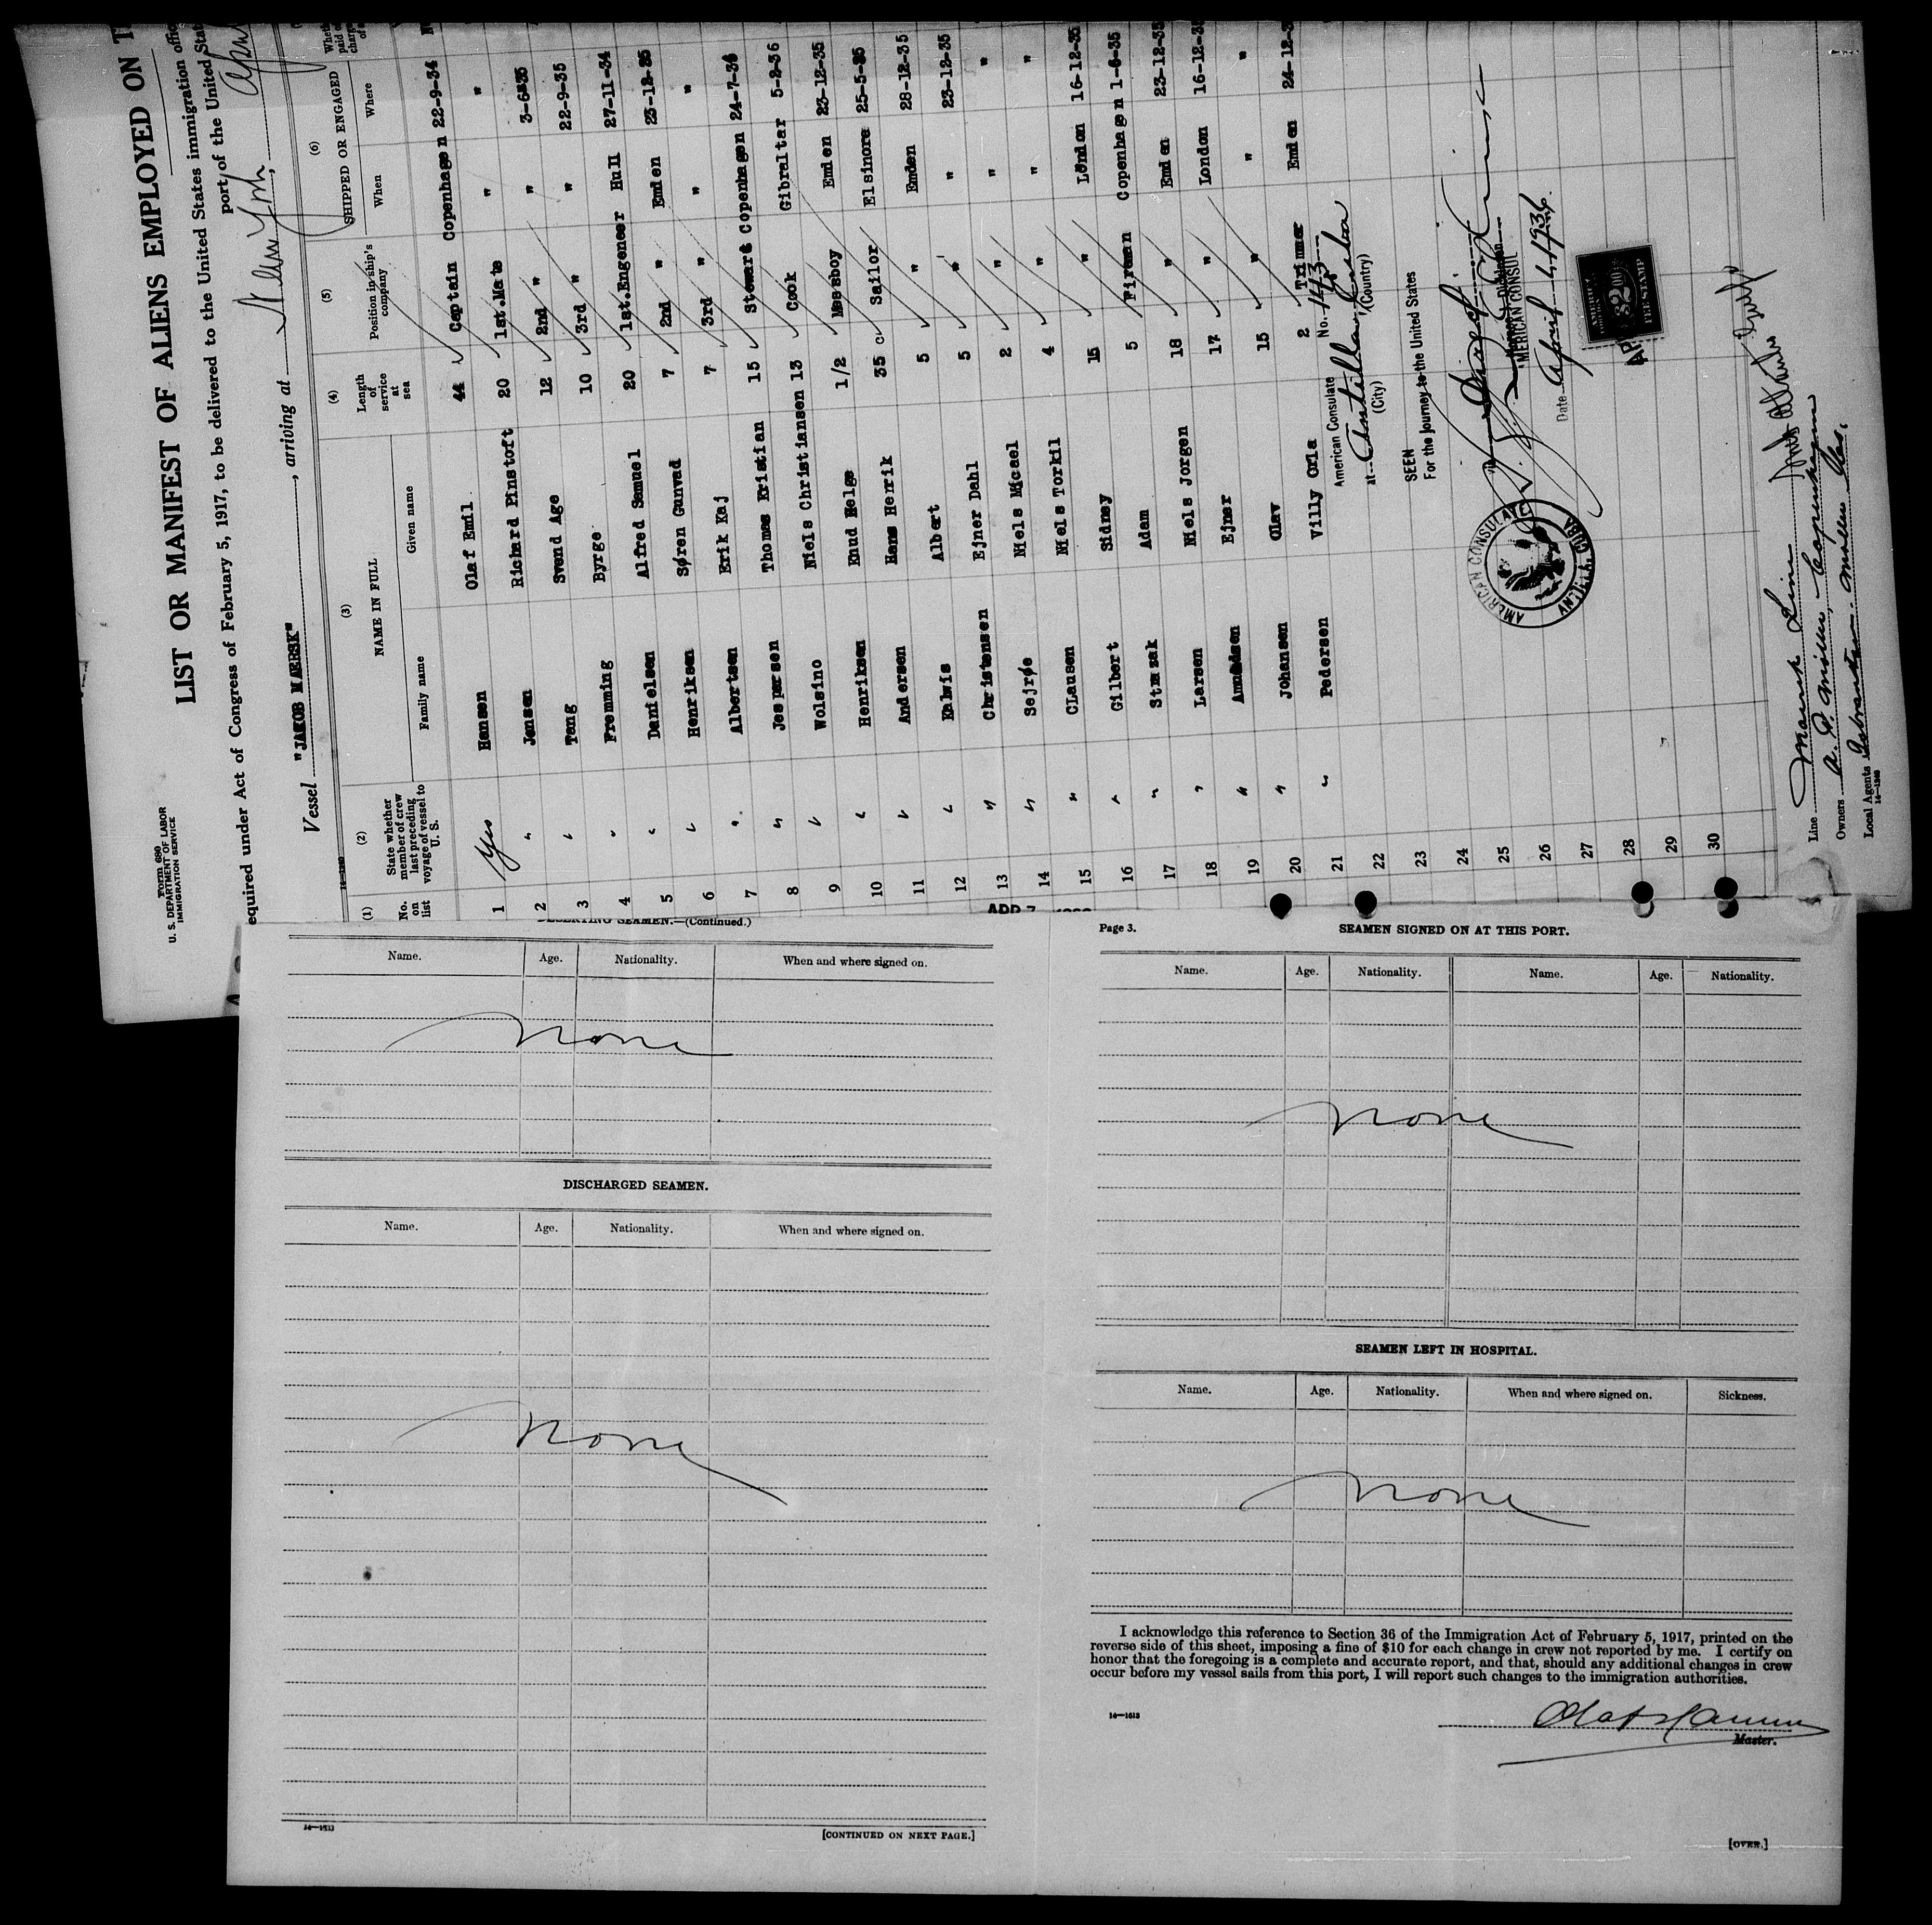 Form 680
U. S. DEPARTMENT OF LABOR
IMMIGRATION SERVICE
LIST OR MANIFEST OF ALIENS EMPLOYED ON T
equired under Act of Congress of February 5, 1917, to be delivered to the United States immigration offic
port of the United Stat
Vessel "JAKOB MAERSK", arriving at New York,
(1) (2) (3) (4) (5) (6)
No. on list
State whether member of crew last preceding voyage of vessel to U. S.
NAME IN FULL
Family name Given name
Length of service at sea
Position in ship's company
SHIPPED OR ENGAGED
When Where
1 Yes Hansen Olaf Emil 44 Captain Copenhagen 22-9-34
2 " Jensen Richard Pinstoft 20 1st.Mate " "
3 " Tang Svend Age 12 2nd " " 3-6-35
4 " Fremming Byrge 10 3rd " " 22-9-35
5 " Danielsen Alfred Samuel 20 1st.Engeneer Hull 27-11-34
6 " Henriksen Søren Gunvad 7 2nd " Emden 23-12-35
7 " Albertsen Erik Kaj 7 3rd " " "
8 " Jespersen Thomas Kristian 15 Stewart Copenhagen 24-7-34
9 " Wolsino Niels Christiansen 13 Cook Gibraltar 5-2-36
10 " Henriksen Knud Helge 1/2 Messboy Emden 23-12-35
11 " Andersen Hans Henrik 35 Sailor Elsinore 25-5-35
12 " Kalwis Albert 5 " Emden 28-12-35
13 " Christensen Ejner Dahl 5 " " 23-12-35
14 " Sejrøe Niels Micael 2 " " "
15 " CLausen Niels Torkil 4 " " "
16 " Gilbert Sidney 15 " London 16-12-35
17 " Adam 5 Fireman Copenhagen 1-6-35
18 " Larsen Niels Jorgen 18 " Emden 23-12-35
19 " Ejner 17 " London 16-12-3
20 " Johansen Olav 15 " " "
21 " Pedersen Villy Orla 2 Trimmer Emden 24-12-3
22
23
24
25
26
27
28
29
30
American Consulate No. 143
at Antilla, Cuba
(City) (Country)
SEEN
For the journey to the United States
AMERICAN CONSUL
Date April 4, 1936
AMERICAN CONSULATE
ANTILLA, CUBA
$2.00
FEE STAMP
Line Maersk Line
Owners A. P. Moller, Copenhagen
Local Agents
14—1240
DESERTING SEAMEN.—(Continued.)
Name. Age. Nationality. When and where signed on.
None
DISCHARGED SEAMEN.
Name. Age. Nationality. When and where signed on.
None
14—1513
[CONTINUED ON NEXT PAGE.]
Page 3.
SEAMEN SIGNED ON AT THIS PORT.
Name. Age. Nationality. Name. Age. Nationality.
None
SEAMEN LEFT IN HOSPITAL.
Name. Age. Nationality. When and where signed on. Sickness.
None
I acknowledge this reference to Section 36 of the Immigration Act of February 5, 1917, printed on the
reverse side of this sheet, imposing a fine of $10 for each change in crew not reported by me. I certify on
honor that the foregoing is a complete and accurate report, and that, should any additional changes in crew
occur before my vessel sails from this port, I will report such changes to the immigration authorities.
14—1513
Olaf Hansen
Master.
[OVER.]